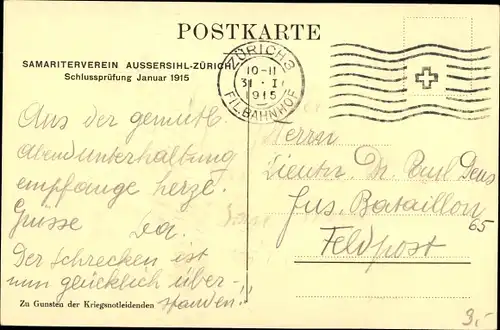 POSTKARTE
SAMARITERVEREIN AUSSERSIHL-ZÜRICH
Schlussprüfung Januar 1915
ZÜRICH 3
10-11
31 · I
1915
FIL. BAHNHOF
Aus der gemütl.
Abendunterhaltung
empfange herzl.
Grüsse
Der Schrecken ist
nun glücklich über-
standen!!
Zu Gunsten der Kriegsnotleidenden
Herrn
Lieuten. Dr. Paul
Jus. Bataillon
65
Feldpost
3.-